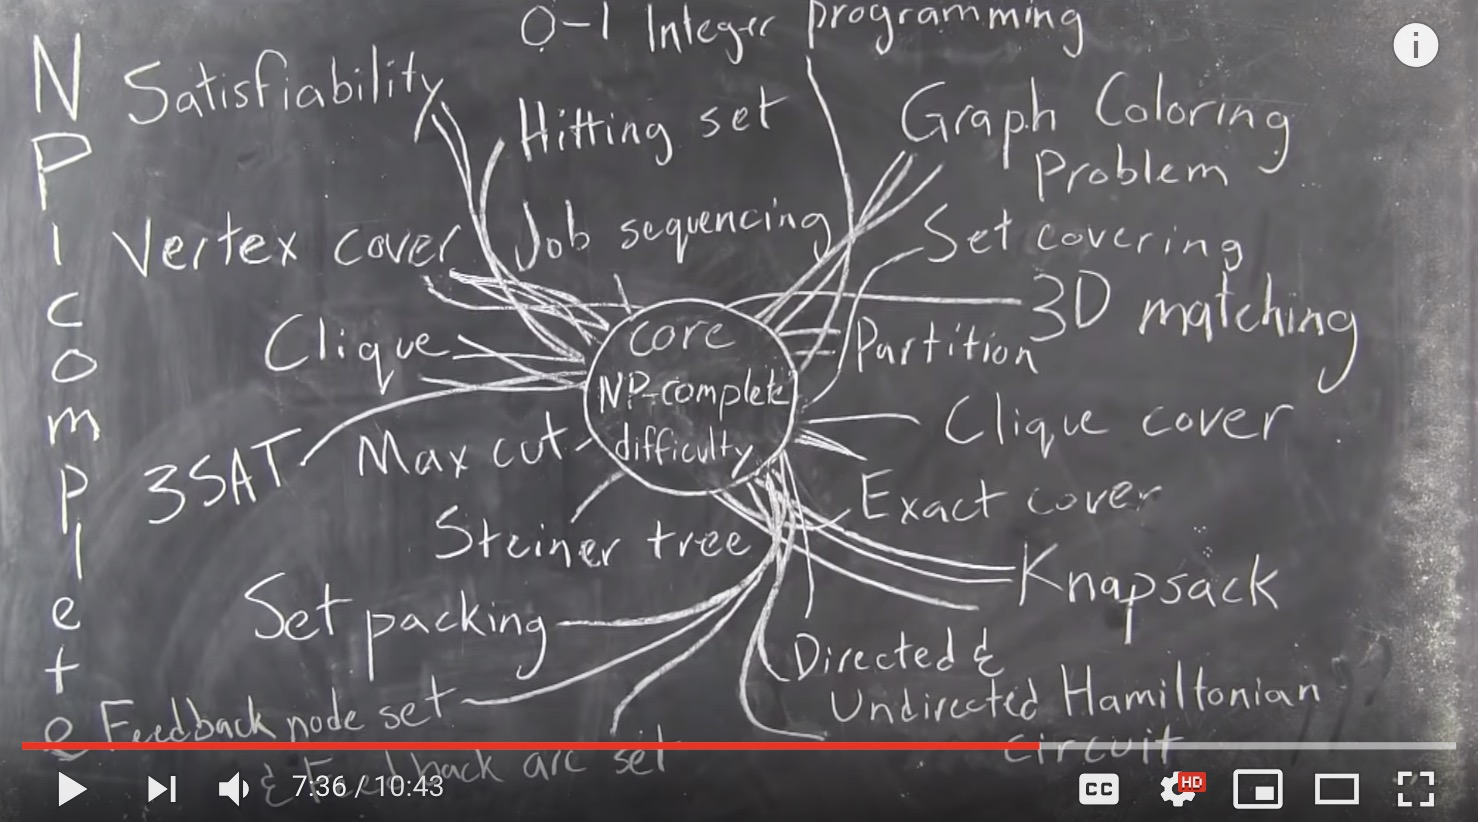 NP complete
0-1 Integer programming
Satisfiability
Hitting set
Graph Coloring
Problem
Vertex cover
Job sequencing
Set covering
3D matching
Clique
core
NP-complete
difficulty
Partition
Clique cover
3SAT
Max cut
Exact cover
Steiner tree
Knapsack
Set packing
Directed &
Undirected Hamiltonian
circuit
Feedback node set
& Feedback arc set
7:36 / 10:43
CC
HD
i